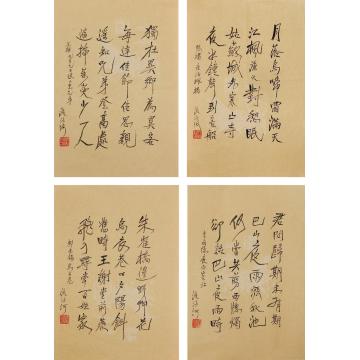 月落烏啼霜滿天
江楓漁火對愁眠
姑蘇城外寒山寺
夜半鐘聲到客船
張繼
獨在異鄉為異客
每逢佳節倍思親
遙知兄弟登高處
遍插茱萸少一人
王維
君問歸期未有期
巴山夜雨漲秋池
何當共剪西窗燭
卻話巴山夜雨時
李商隱夜雨寄北
朱雀橋邊野草花
烏衣巷口夕陽斜
舊時王謝堂前燕
飛入尋常百姓家
劉禹錫烏衣巷